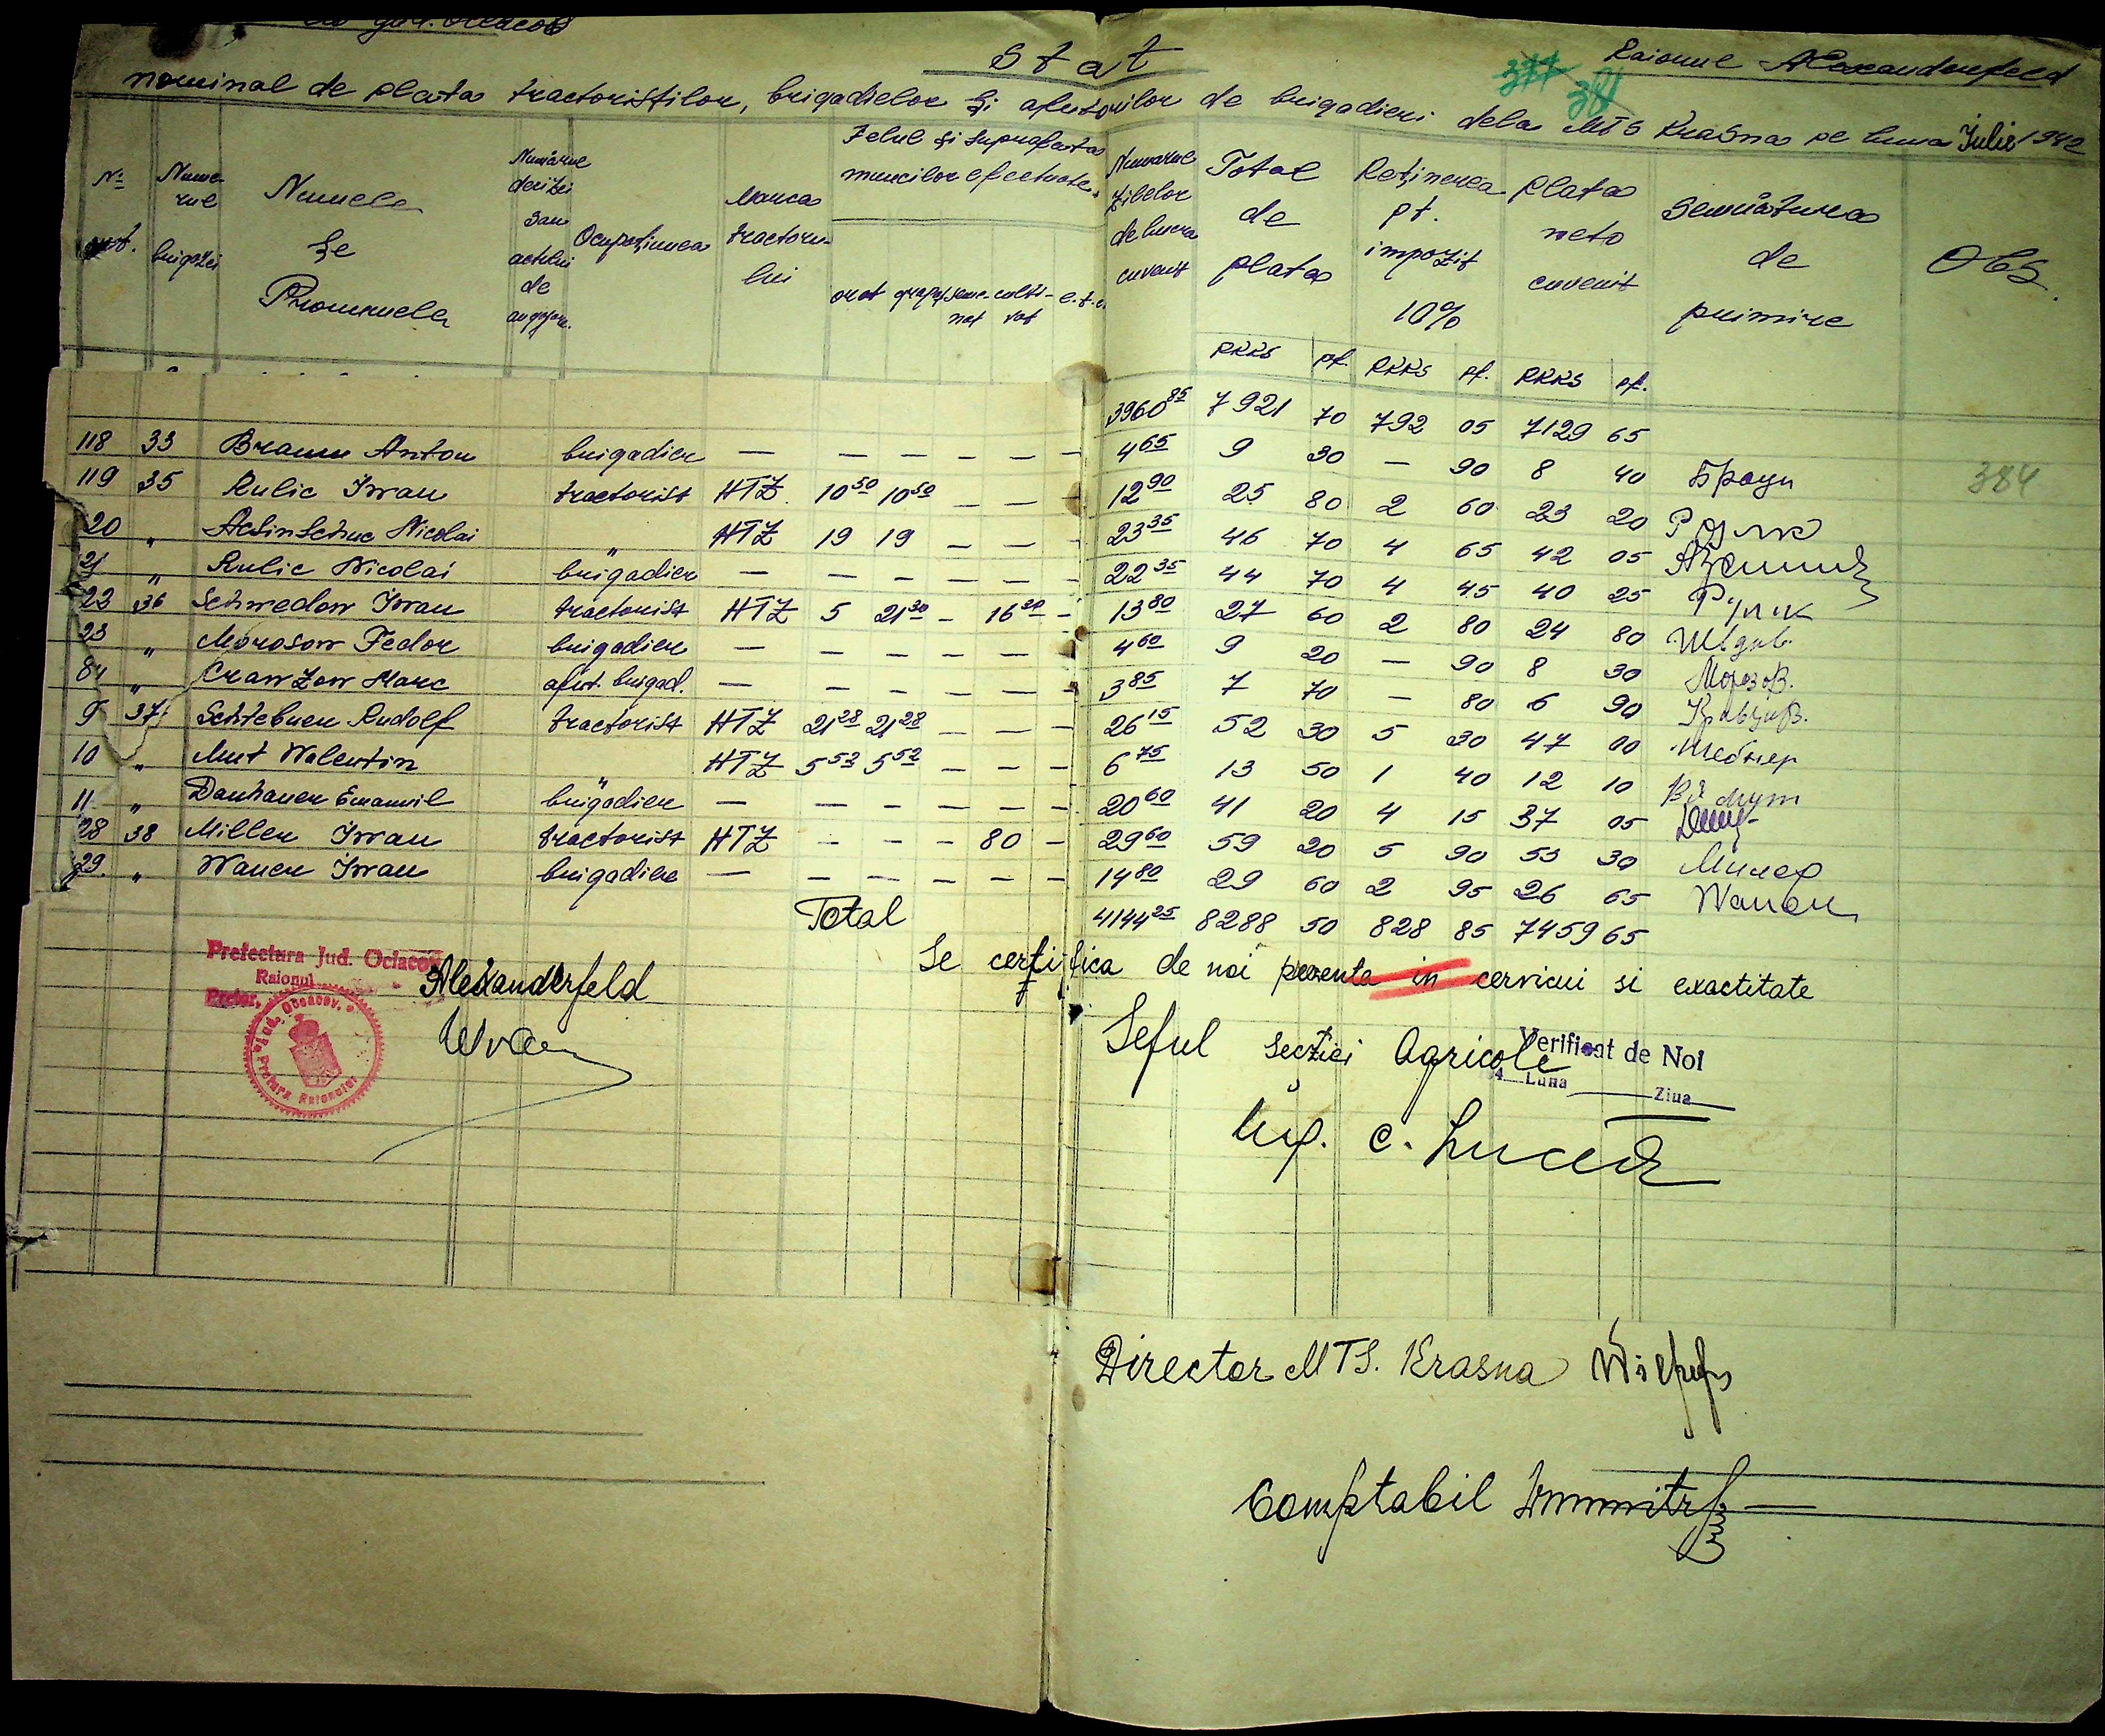 jud. Oceacov
Stat
Raionul Alexanderfeld
377 381
nominal de plata tractoriștilor, brigadielor și ajutorilor de brigadieri dela MTS Krasna pe luna Julie 1942
Nº crt.
Numerul brigăzei
Numele și Pronumele
Numărul deciziei sau actului de angajare.
Ocupațiunea
Marca tractorului
Felul și suprafața muncilor efectuate.
arat grapat semenat cultivat e.t.c.
Numărul zilelor de lucru cuvenit
Total de plata
Reținerea pt. impozit 10%
Plata neto cuvenit
Semnătura de primire
Obs.
RKKS pf. RKKS pf. RKKS pf.
3960 85 7921 70 792 05 7129 65
118 33 Braun Anton brigadier — — — — — — 4 65 9 30 — 90 8 40 Браун
384
119 35 Rulic Iwan tractorist HTZ 10 50 10 50 — — — 12 90 25 80 2 60 23 20 Рулик
20 " Acsinschuc Nicolai " HTZ 19 19 — — — 23 35 46 70 4 65 42 05
21 " Rulic Nicolai brigadier — — — — — — 22 35 44 70 4 45 40 25 Рулик
22 36 Schwedow Iwan tractorist HTZ 5 21 30 — 16 20 — 13 80 27 60 2 80 24 80 Шведов.
23 " Morosow Fedor brigadier — — — — — — 4 60 9 20 — 90 8 30 Морозов.
84 " Crawzow Marc ajut. brigad. — — — — — — 3 85 7 70 — 80 6 90 Кравцов.
9 37 Schiebner Rudolf tractorist HTZ 21 28 21 28 — — — 26 15 52 30 5 30 47 00 Шебнер
10 " Mut Walentin " HTZ 5 52 5 52 — — — 6 75 13 50 1 40 12 10 Мут
11 " Danhauer Emanuil brigadier — — — — — — 20 60 41 20 4 15 37 05
28 38 Miller Iwan tractorist HTZ — — — 80 — 29 60 59 20 5 90 53 30 Милер
29. " Waner Iwan brigadier — — — — — — 14 80 29 60 2 95 26 65 Waner
Total 4144 25 8288 50 828 85 7459 65
Se certifica de noi prezenta in cerviciu si exactitate
Prefectura Jud. Ociacov
Raionul Alexanderfeld
Pretor,
Jud. Oceacov
Pretura Raionului
Seful Secției Agricole
Verificat de Noi
4 Luna Ziua
Ing. C.
Director MTS. Krasna
Comptabil